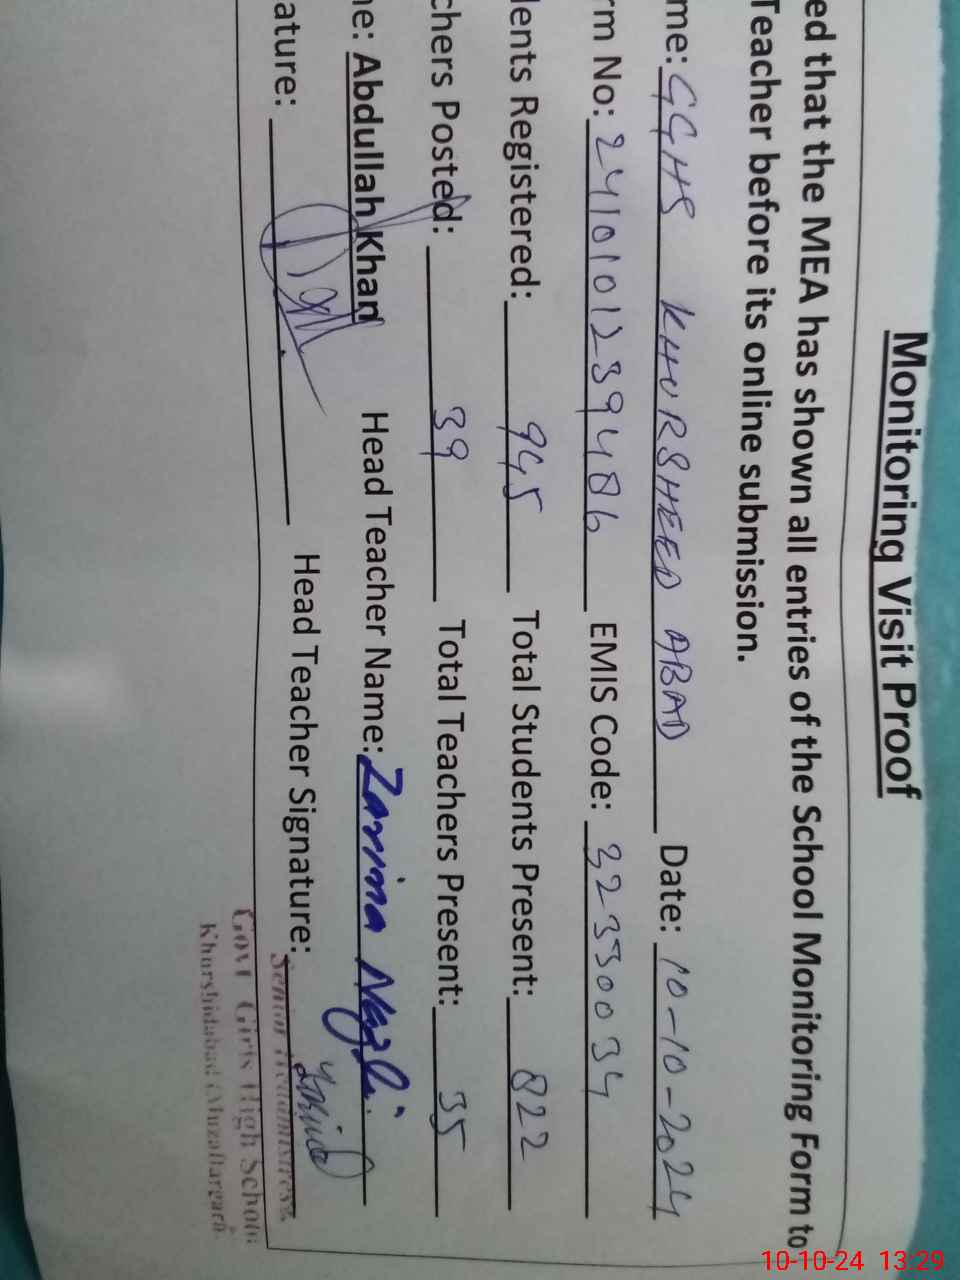 Monitoring Visit Proof
ed that the MEA has shown all entries of the School Monitoring Form to
Teacher before its online submission.
me: GGHS KHURSHEED ABAD Date: 10-10-2024
rm No: 2410101239486 EMIS Code: 32350034
lents Registered: 945 Total Students Present: 822
chers Posted: 39 Total Teachers Present: 35
ne: Abdullah Khan Head Teacher Name: Zarina Nazli
ature: Head Teacher Signature:
Senior Headmistress
Govt Girls High School
Khurshidabad (Muzaffargarh
10-10-24 13:29